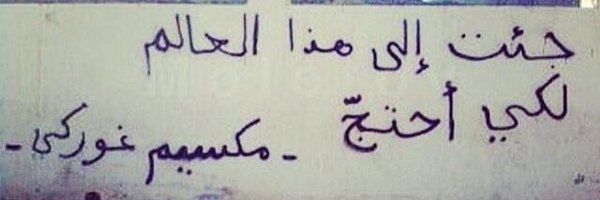 جئت إلى هذا العالم
لكي أحتجّ
- مكسيم غوركي -